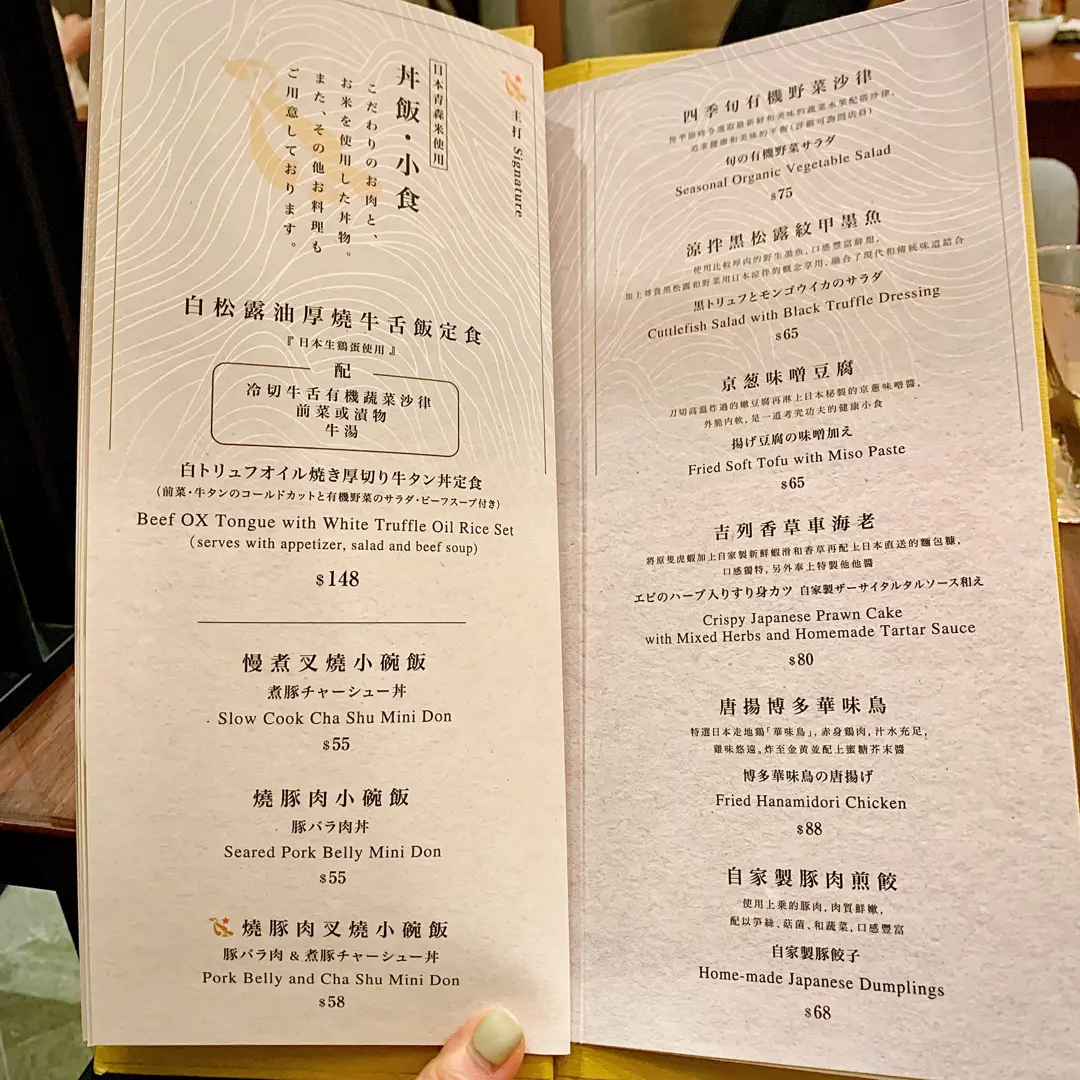 主打 Signature
日本青森米使用
丼飯・小食
こだわりのお肉と、
お米を使用した丼物。
また、その他お料理も
ご用意しております。
白松露油厚燒牛舌飯定食
『日本生鶏蛋使用』
配
冷切牛舌有機蔬菜沙律
前菜或漬物
牛湯
白トリュフオイル焼き厚切り牛タン丼定食
(前菜・牛タンのコールドカットと有機野菜のサラダ・ビーフスープ付き)
Beef OX Tongue with White Truffle Oil Rice Set
(serves with appetizer, salad and beef soup)
$148
慢煮叉燒小碗飯
煮豚チャーシュー丼
Slow Cook Cha Shu Mini Don
$55
燒豚肉小碗飯
豚バラ肉丼
Seared Pork Belly Mini Don
$55
燒豚肉叉燒小碗飯
豚バラ肉 & 煮豚チャーシュー丼
Pork Belly and Cha Shu Mini Don
$58
四季旬有機野菜沙律
按季節時令選取最新鮮和美味的蔬菜水果配搭沙律,
追求健康和美味的平衡(詳細可詢問店員)
旬の有機野菜サラダ
Seasonal Organic Vegetable Salad
$75
涼拌黑松露紋甲墨魚
使用比較厚肉的野生墨魚, 口感豐富鮮甜,
加上尊貴黑松露和野菜用日本涼伴的概念享用, 融合了現代和傳統味道結合
黒トリュフとモンゴウイカのサラダ
Cuttlefish Salad with Black Truffle Dressing
$65
京葱味噌豆腐
刀切高溫炸過的嫩豆腐再淋上日本秘製的京蔥味噌醬,
外脆内軟, 是一道考究功夫的健康小食
揚げ豆腐の味噌加え
Fried Soft Tofu with Miso Paste
$65
吉列香草車海老
將原隻虎蝦加上自家製新鮮蝦滑和香草再配上日本直送的麵包糠,
口感獨特, 另外奉上特製他他醬
エビのハーブ入りすり身カツ 自家製ザーサイタルタルソース和え
Crispy Japanese Prawn Cake
with Mixed Herbs and Homemade Tartar Sauce
$80
唐揚博多華味鳥
特選日本走地鶏「華味鳥」, 赤身鶏肉, 汁水充足,
雞味悠遠。炸至金黄並配上蜜糖芥末醬
博多華味鳥の唐揚げ
Fried Hanamidori Chicken
$88
自家製豚肉煎餃
使用上乘的豚肉, 肉質鮮嫩,
配以笋絲、菇菌、和蔬菜, 口感豐富
自家製豚餃子
Home-made Japanese Dumplings
$68